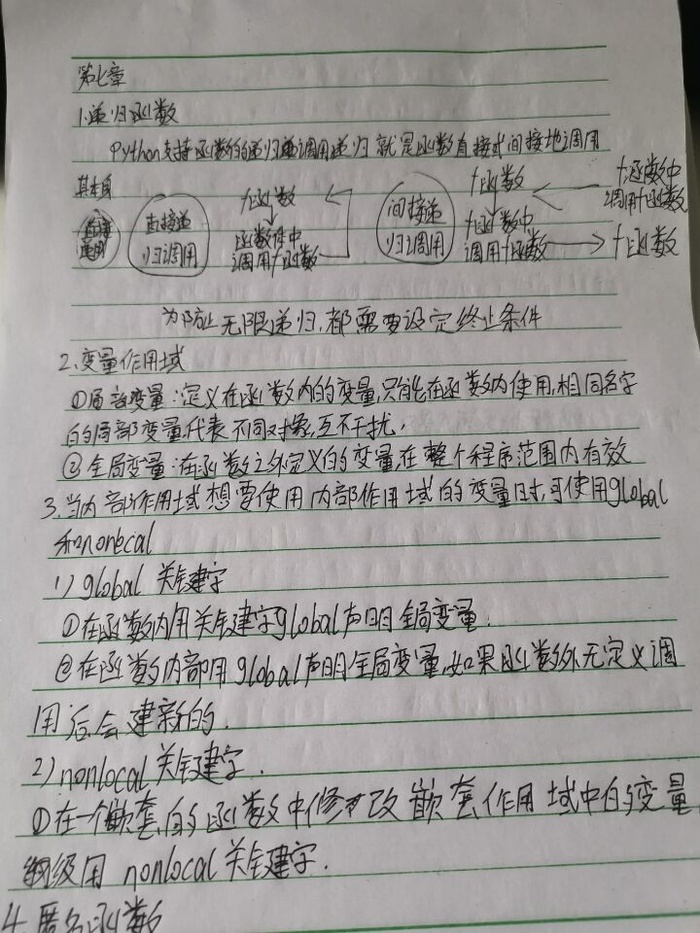 第七章
1.递归函数
Python支持函数的递归调用递归就是函数直接或间接地调用
其本身
直接递归调用
f函数
函数体中
调用f函数
间接递归调用
f函数
f函数中
调用f函数
f函数
f函数中
调用f函数
为防止无限递归,都需要设定终止条件
2.变量作用域
①局部变量:定义在函数内的变量,只能在函数内使用,相同名字
的局部变量,代表不同对象,互不干扰,
②全局变量:在函数之外定义的变量,在整个程序范围内有效
3.当内部作用域想要使用内部作用域的变量时,可使用global
和nonecal
1) global 关键字
①在函数内用关键字global声明全局变量.
②在函数内部用global声明全局变量,如果函数外无定义调
用后会建新的.
2) nonlocal关键字.
①在一个嵌套的函数中修改嵌套作用域中的变量
用 nonlocal关键字.
4.匿名函数